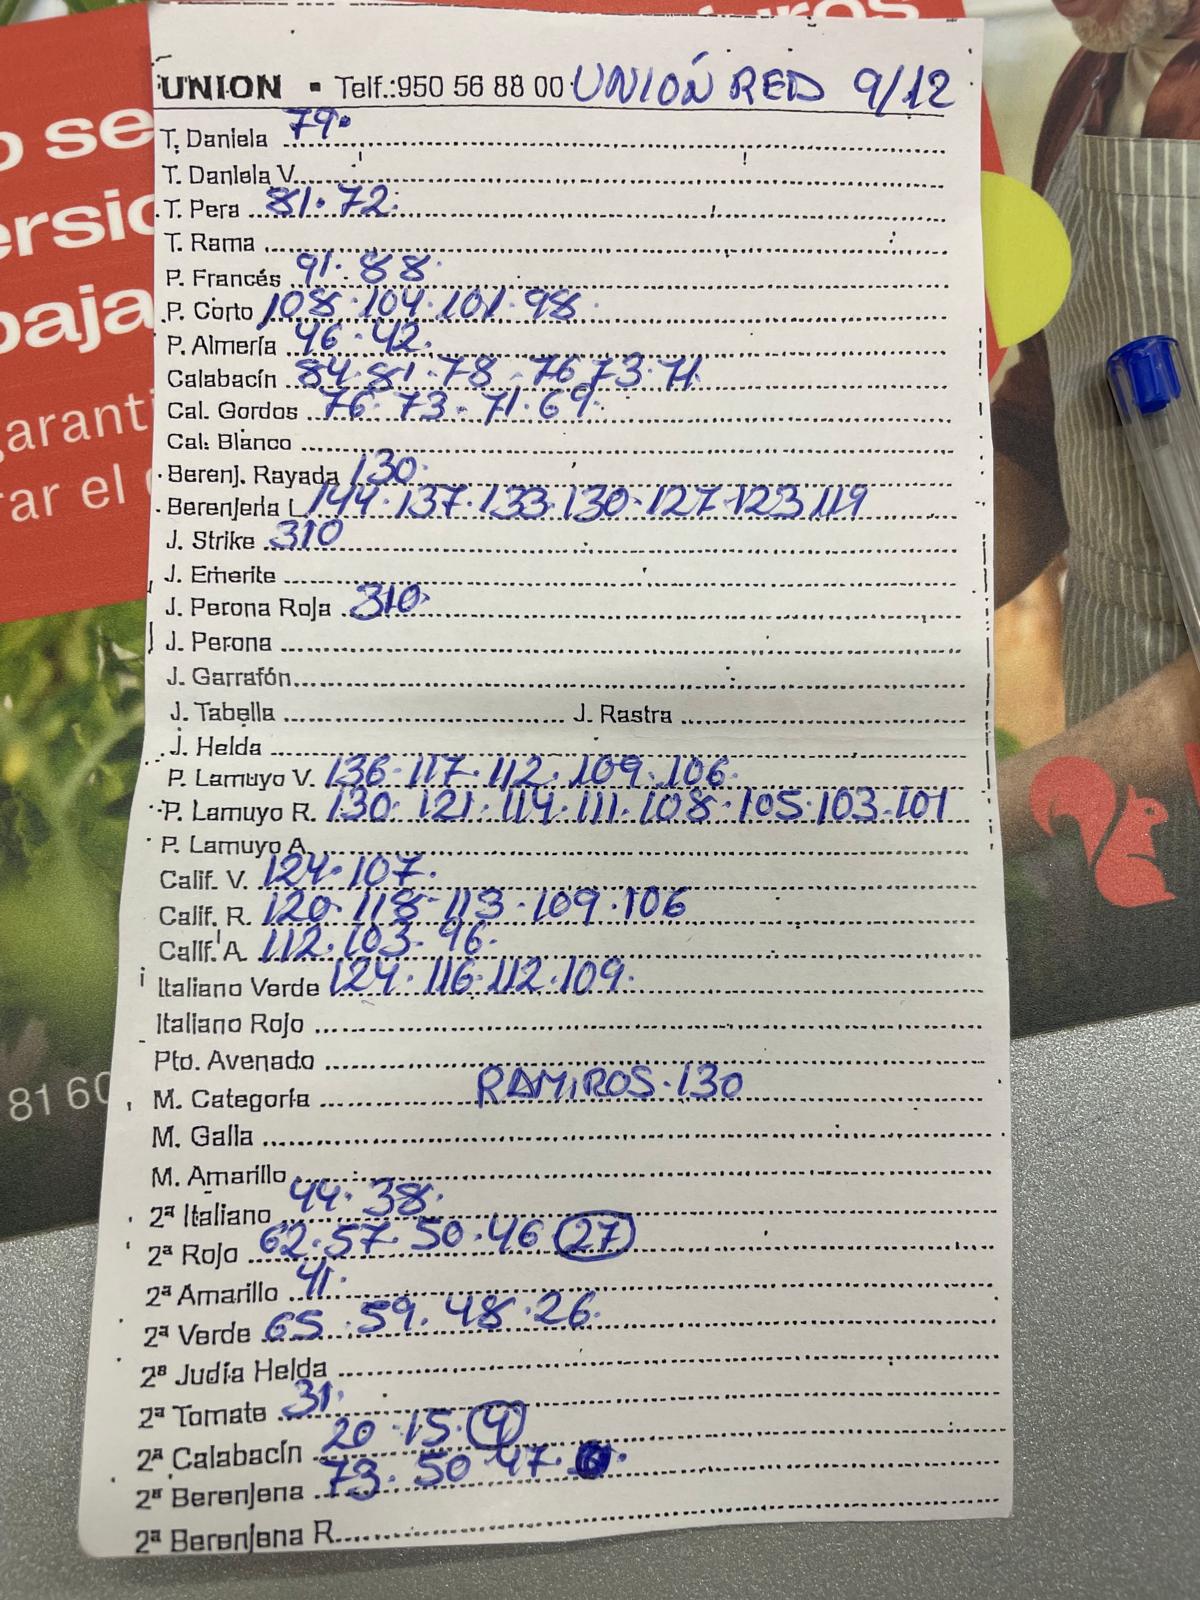 UNION • Telf.:950 56 88 00 UNIÓN RED 9/12
T. Daniela 79
T. Daniela V.
T. Pera 81. 72.
T. Rama
P. Francés 91. 88.
P. Corto 108. 104. 101. 98
P. Almería 46. 42.
Calabacín 84. 81. 78. 76 73. 71
Cal. Gordos 76. 73. 71. 69.
Cal. Blanco
Berenj. Rayada 130.
Berenjena L 144. 137. 133. 130. 127. 123 119
J. Strike 310
J. Emerite
J. Perona Roja 310.
J. Perona
J. Garrafón
J. Tabella J. Rastra
J. Helda
P. Lamuyo V. 136. 117. 112. 109. 106.
P. Lamuyo R. 130. 121. 114. 111. 108. 105. 103. 101
P. Lamuyo A.
Calif. V. 124. 107.
Calif. R. 120. 118. 113. 109. 106
Calif. A. 112. 103. 96.
Italiano Verde 124. 116. 112. 109.
Italiano Rojo
Pto. Avenado
M. Categoría RAMIROS. 130
M. Galia
M. Amarillo
2ª Italiano 44. 38.
2ª Rojo 62. 57. 50. 46 27
2ª Amarillo 41.
2ª Verde 65. 59. 48. 26.
2ª Judía Helda
2ª Tomate 31.
2ª Calabacín 20. 15. 4
2ª Berenjena 73. 50 47.
2ª Berenjena R.
o se
ersio
baja
garanti
rar el
81 60